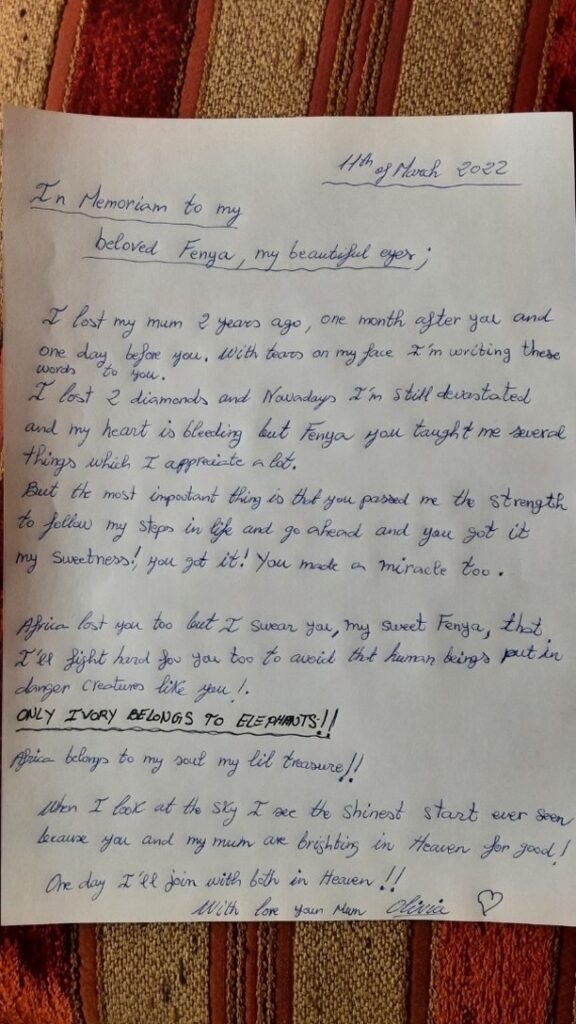 11th of March 2022
In Memoriam to my
beloved Fenya, my beautiful eyes;
I lost my mum 2 years ago, one month after you and
one day before you. With tears on my face I'm writing these
words to you.
I lost 2 diamonds and Nowadays I'm still devastated
and my heart is bleeding but Fenya you taught me several
things which I appreciate a lot.
But the most important thing is that you passed me the strength
to follow my steps in life and go ahead and you got it
my sweetness!, you got it! You made a miracle too.
Africa lost you too but I swear you, my sweet Fenya, that
I'll fight hard for you too to avoid that human beings put in
danger creatures like you!.
ONLY IVORY BELONGS TO ELEPHANTS!!
Africa belongs to my soul my lil treasure!!
When I look at the sky I see the shinest start ever seen
because you and my mum are brighting in Heaven for good!
One day I'll join with both in Heaven!!
With love your Mum Olivia ♡